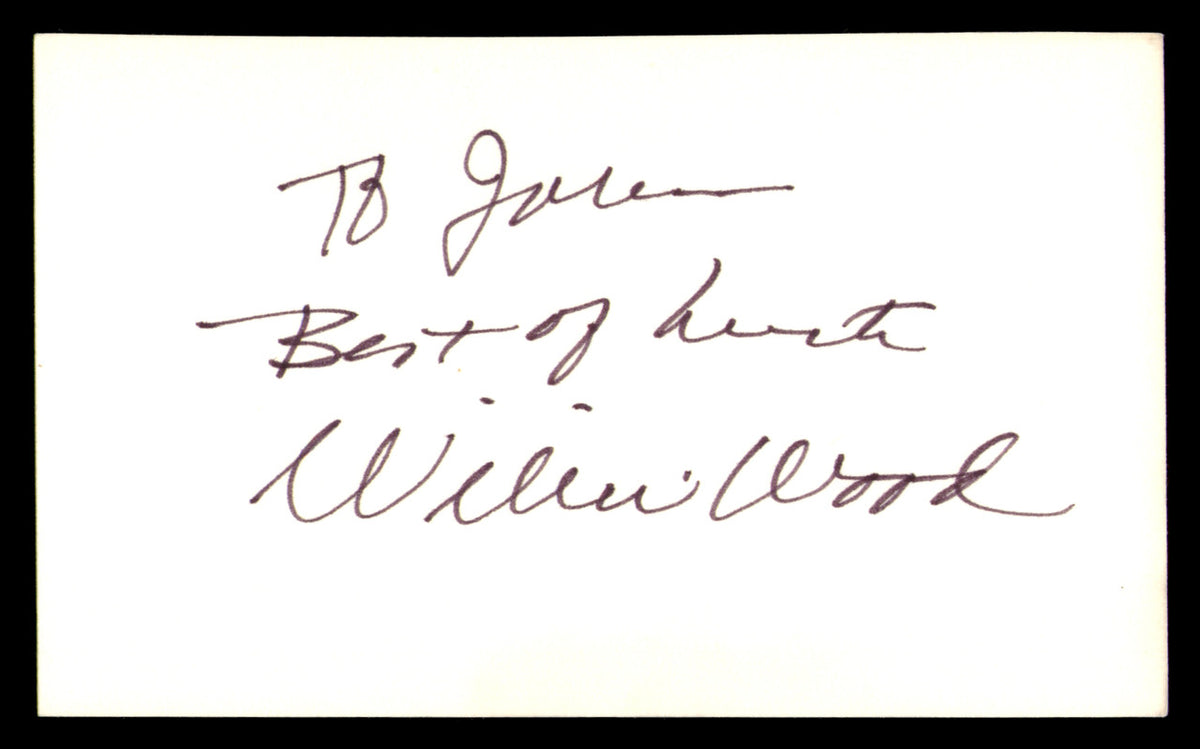 To John
Best of Luck
Willie Wood